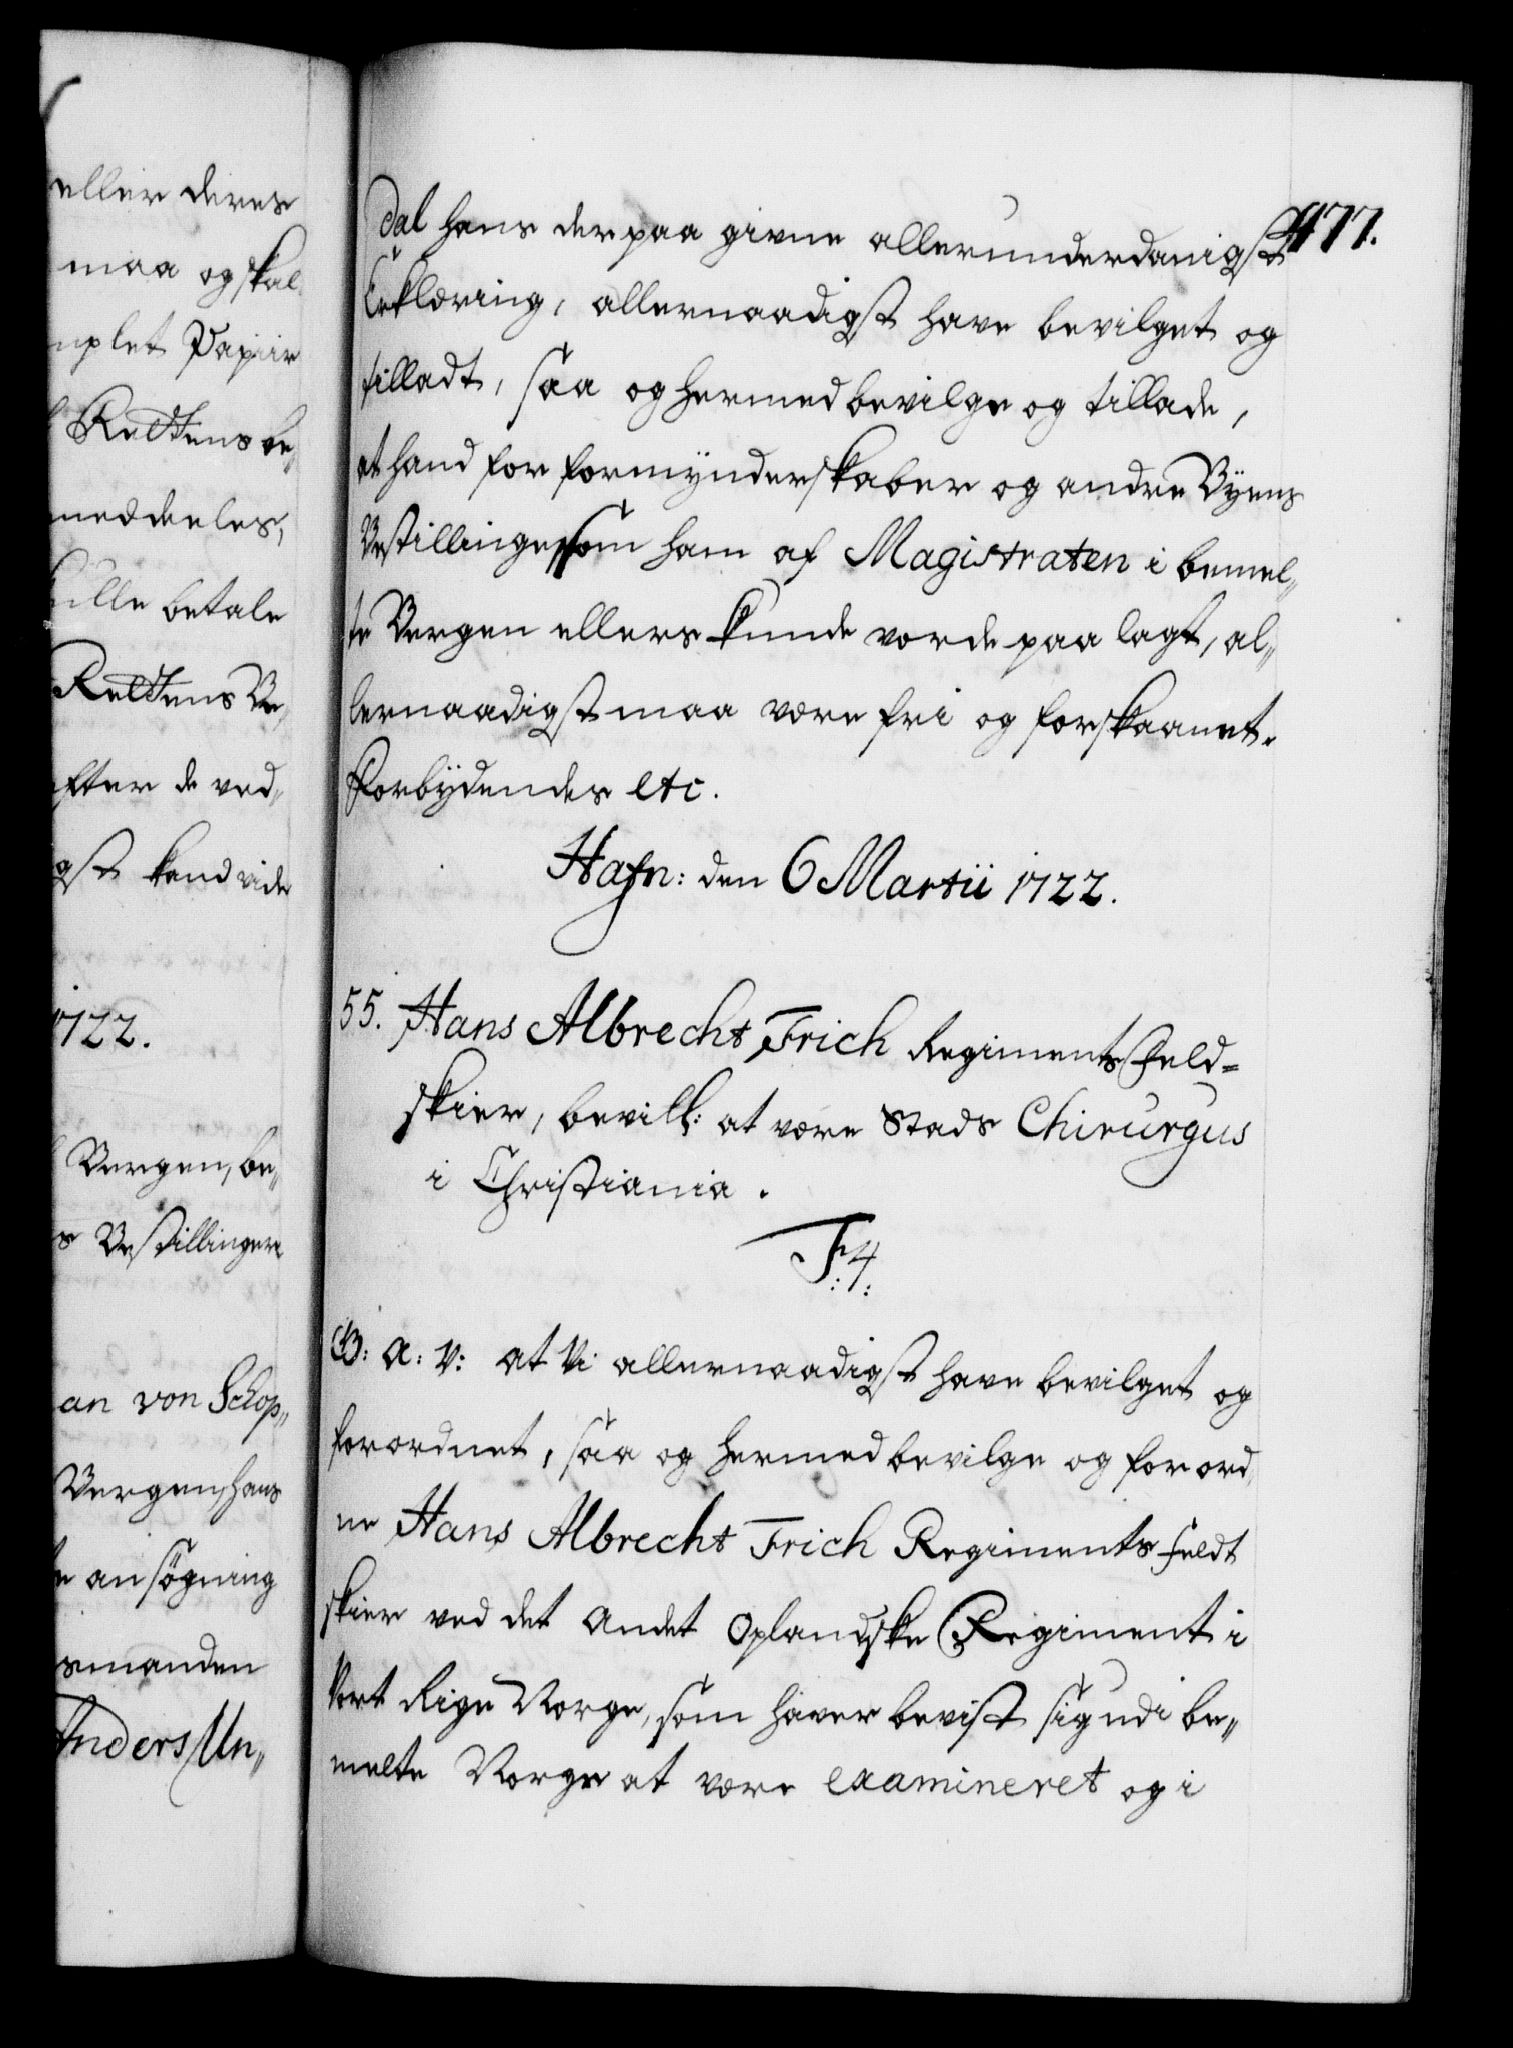 eller deres
maa og skal
nplet Papiir
Rettens be„
meddeeles,
ulle betale
Rettens Be„
efter de ved„
gst kand vide
1722.
Bergen, be„
s Bestillinger
an von Schop„
Bergen, hans
te ansøgning
smanden
Anders Un„
477.
dal hans derpaa givne allerunderdanigst
Erklæring, allernaadigst have bevilget og
tilladt, saa og hermed bevilge og tillade,
at hand for formynderskaber og andre Byens
Bestillinger som ham af Magistraten i bemel„
te Bergen ellers kunde vorde paa lagt, al„
lernaadigst maa være fri og forskaanet.
Forbydendes etc.
Hafn: den 6 Martii 1722.
55. Hans Albrecht Frich Regiments Feld=
skier, bevill: at være Stads Chirurgus
i Christiania.
F:4:
G: A: V: at Vi allernaadigst have bevilget og
forordnet, saa og hermed bevilge og forord
ne Hans Albrecht Frich Regiments feldt
skier ved det Andet Oplandske Regiment i
Vort Rige Norge, som haver bevist sig udi be„
melte Norge at være examineret og i